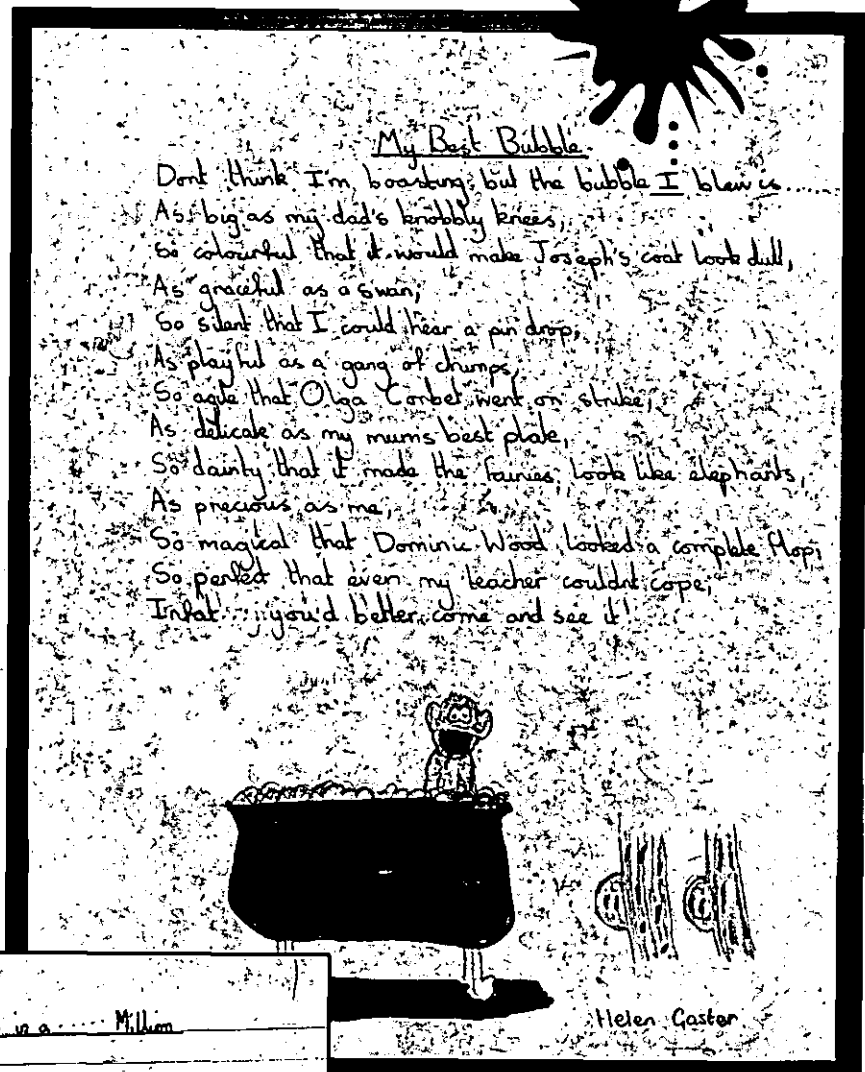 My Best Bubble
Dont think I'm boasting but the bubble I blew is......
As big as my dad's knobbly knees,
So colourful that it would make Joseph's coat look dull,
As graceful as a swan,
So silent that I could hear a pin drop,
As playful as a gang of chimps,
So agile that Olga Corbet went on strike,
As delicate as my mums best plate,
So dainty that it made the fairies look like elephants,
As precious as me,
So magical that Dominic Wood looked a complete flop,
So perfect that even my teacher couldnt cope,
Infat.... you'd better come and see it!
Helen Gaster
is a ...... Million